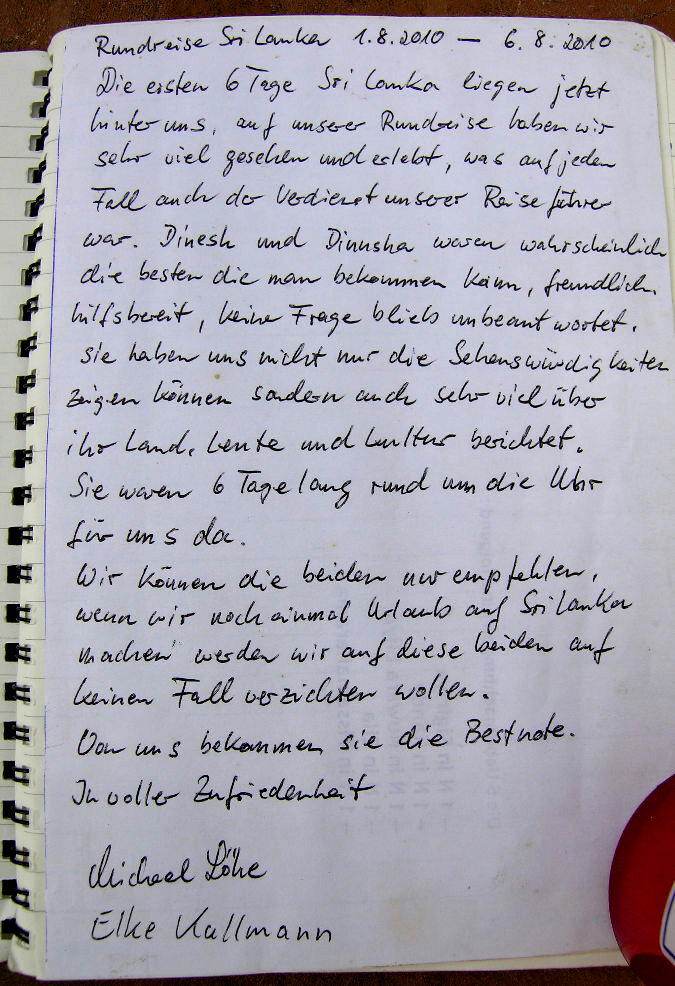 Rundreise Sri Lanka 1.8.2010 — 6.8.2010
Die ersten 6 Tage Sri Lanka liegen jetzt
hinter uns, auf unserer Rundreise haben wir
sehr viel gesehen und erlebt, was auf jeden
Fall auch der Verdienst unserer Reiseführer
war. Dinesh und Dinusha waren wahrscheinlich
die besten die man bekommen kann, freundlich,
hilfsbereit, keine Frage blieb unbeantwortet.
sie haben uns nicht nur die Sehenswürdigkeiten
zeigen können sondern auch sehr viel über
ihr Land, Leute und Kultur berichtet.
Sie waren 6 Tage lang rund um die Uhr
für uns da.
Wir können die beiden nur empfehlen,
wenn wir noch einmal Urlaub auf Sri Lanka
machen werden wir auf diese beiden auf
keinen Fall verzichten wollen.
Von uns bekommen sie die Bestnote.
In voller Zufriedenheit
Michael
Elke Kallmann